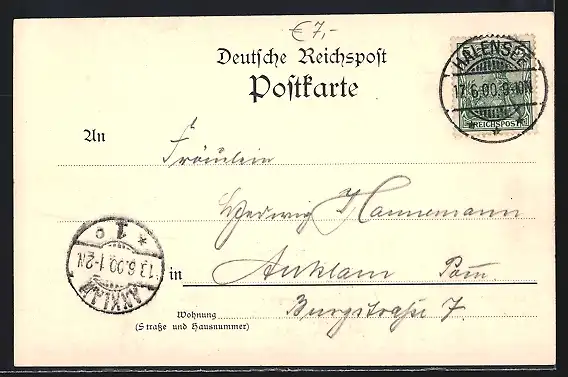 € 7,-
Deutsche Reichspost
Postkarte
HALENSEE
17.6.00.9-10N
REICHSPOST
An
Fräulein
Hedwig Hannemann
in Anklam Pom.
Burgstraße 7.
Wohnung
(Straße und Hausnummer)
ANKLAM
13.6.00.1-2N
* 1 c